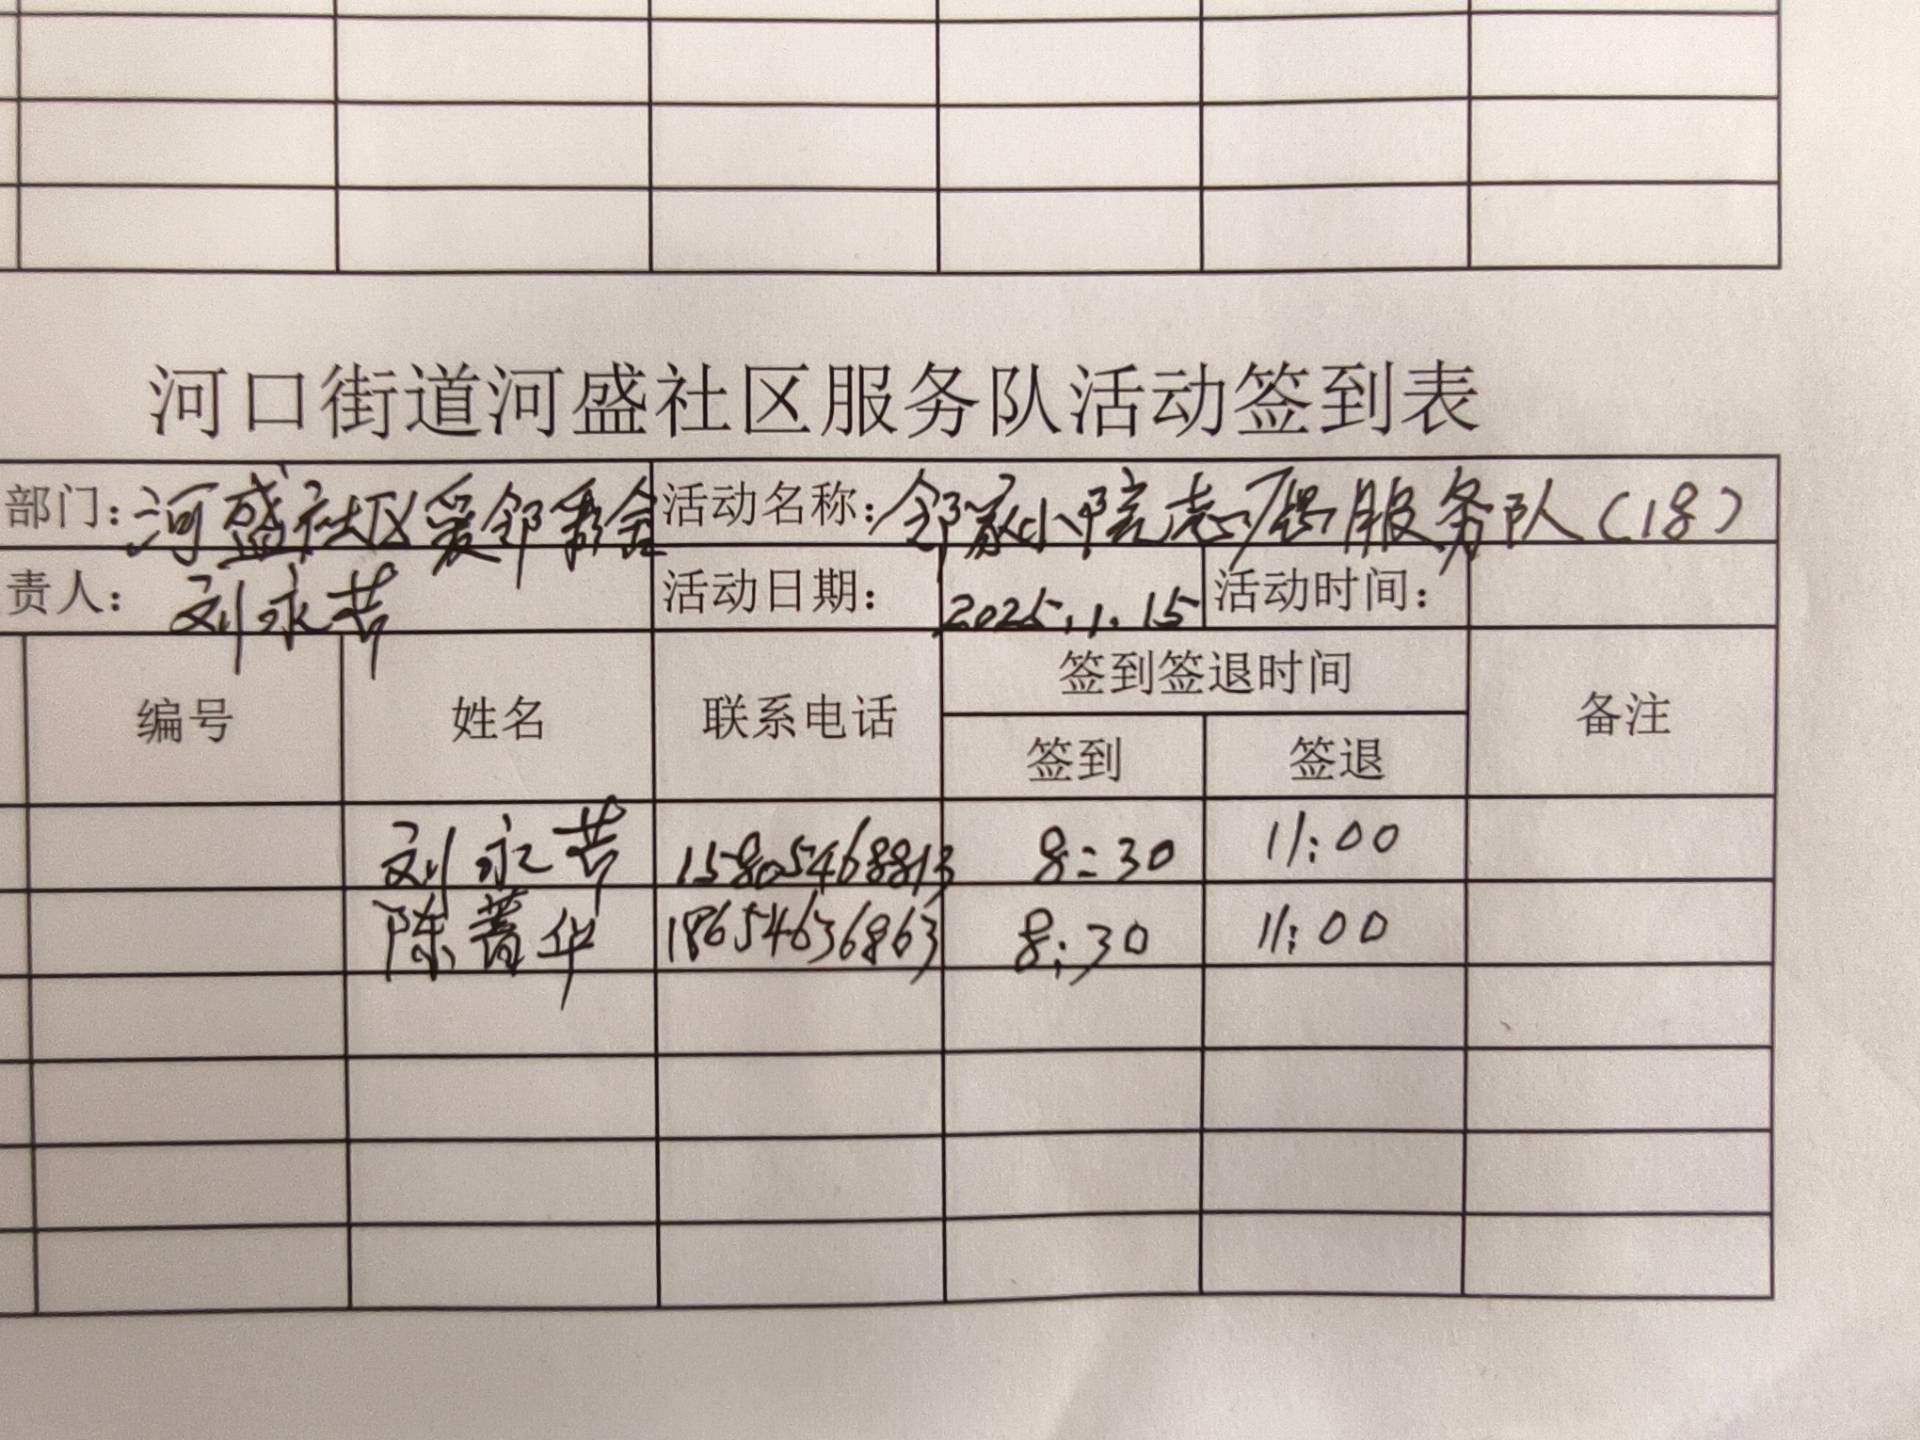 河口街道河盛社区服务队活动签到表
部门：河盛社区爱邻 活动名称：邻家小院志愿服务队（18）
责人：刘永芳 活动日期：2025.1.15 活动时间：
编号 姓名 联系电话 签到签退时间 备注
签到 签退
刘永芳 15805468813 8:30 11:00
陈菁华 18654636863 8:30 11:00